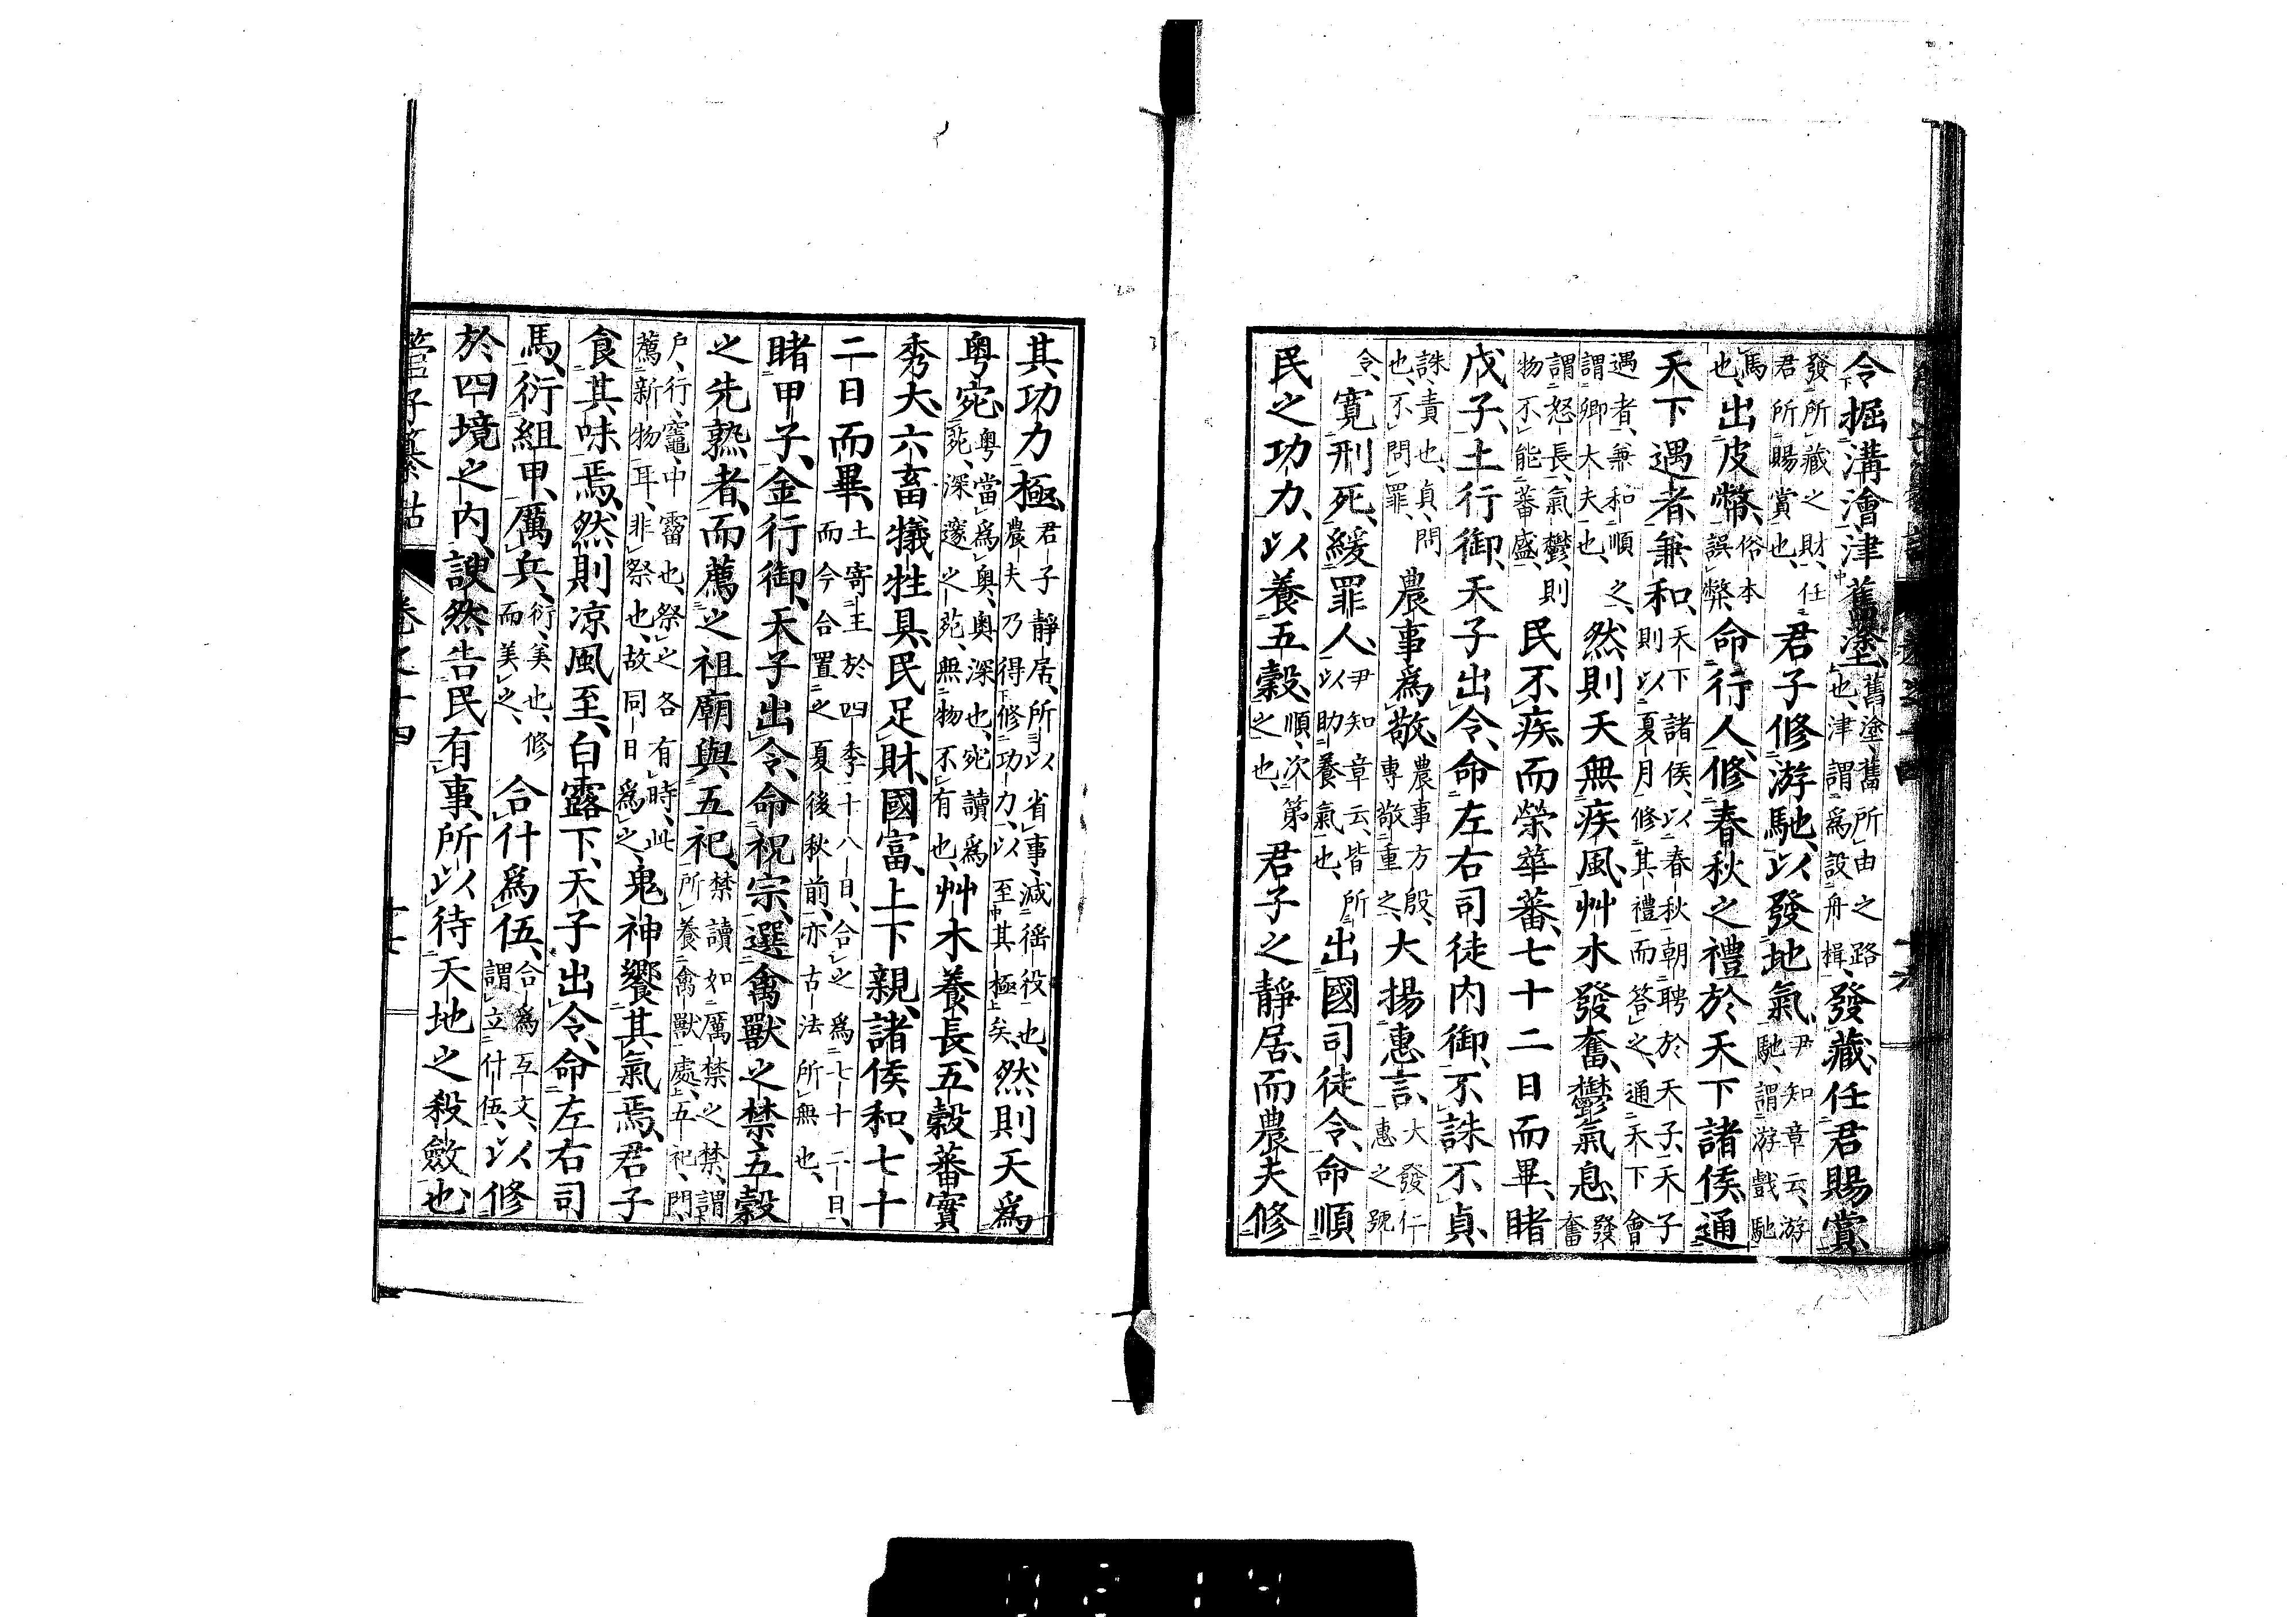 令掘溝澮津舊塗、舊塗、舊所由之路也、津謂爲設舟楫、發藏任君賜賞、
發所藏之財、任君所賜賞也、君子修游馳、以發地氣、尹知章云、游馳、謂游戲馳
馬也、出皮幣、俗本誤弊命行人、修春秋之禮於天下諸侯、通
天下遇者、兼和、天下諸侯、以春秋朝聘於天子、天子則以夏月修其禮而答之、通天下會
遇者、兼和順之、謂卿大夫也、然則天無疾風、艸木發奮、鬱氣息、發奮
謂怒長、氣鬱、則物不能蕃盛、民不疾、而榮華蕃、七十二日而畢、睹
戊子、土行御、天子出令、命左右司徒内御、不誅不貞、
誅、責也、貞、問也、不問罪、農事爲敬、農事方殷、專敬重之、大揚惠言、大發仁惠之號
令、寛刑死、緩罪人、尹知章云、皆所以助養氣也、出國司徒令、命順
民之功力、以養五穀、順、次第之也、君子之靜居、而農夫修
其功力極、君子靜居、所以省事、減徭役也、農夫乃得修功力、以至其極矣、然則天爲
粤宛、粤當爲奥、奥、深也、宛讀爲菀、深邃之菀、無物不有也、艸木養長、五穀蕃實
秀大、六畜犧牲具、民足財、國富、上下親、諸侯和、七十
二日而畢、土寄王於四季十八日、合之爲七十二日、而今合置之夏後秋前、亦古法所無也、
睹甲子、金行御、天子出令、命祝宗、選禽獸之禁、五穀
之先熟者、而薦之祖廟與五祀、禁讀如厲禁之禁、謂所養禽獸處、五祀、門、
戸、行、竈、中霤也、祭之各有時、此薦新物耳、非祭也、故同日爲之、鬼神饗其氣焉、君子
食其味焉、然則凉風至、白露下、天子出令、命左右司
馬、衍組甲、厲兵、衍、美也、修而美之、合什爲伍、合爲互文、謂立什伍、以修
於四境之内、諛然告民有事、所以待天地之殺斂也、
管子纂詁 卷之十四 十七